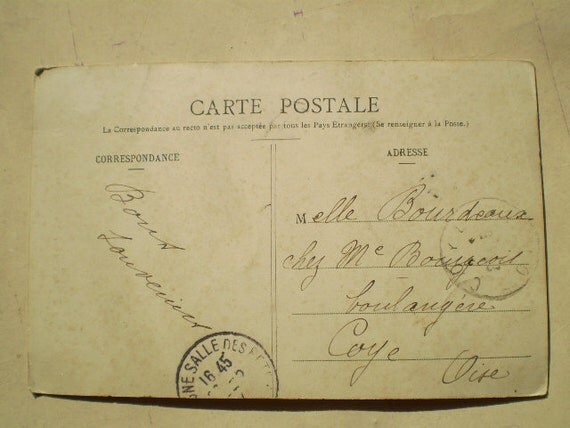 CARTE POSTALE
La Correspondance au recto n'est pas acceptée par tous les Pays Etrangers (Se renseigner à la Poste.)
CORRESPONDANCE
ADRESSE
Bons
souvenirs
Melle Bourdeaux
chez Me Bourgeois
boulangère
Coye
Oise
SALLE DES
16 45